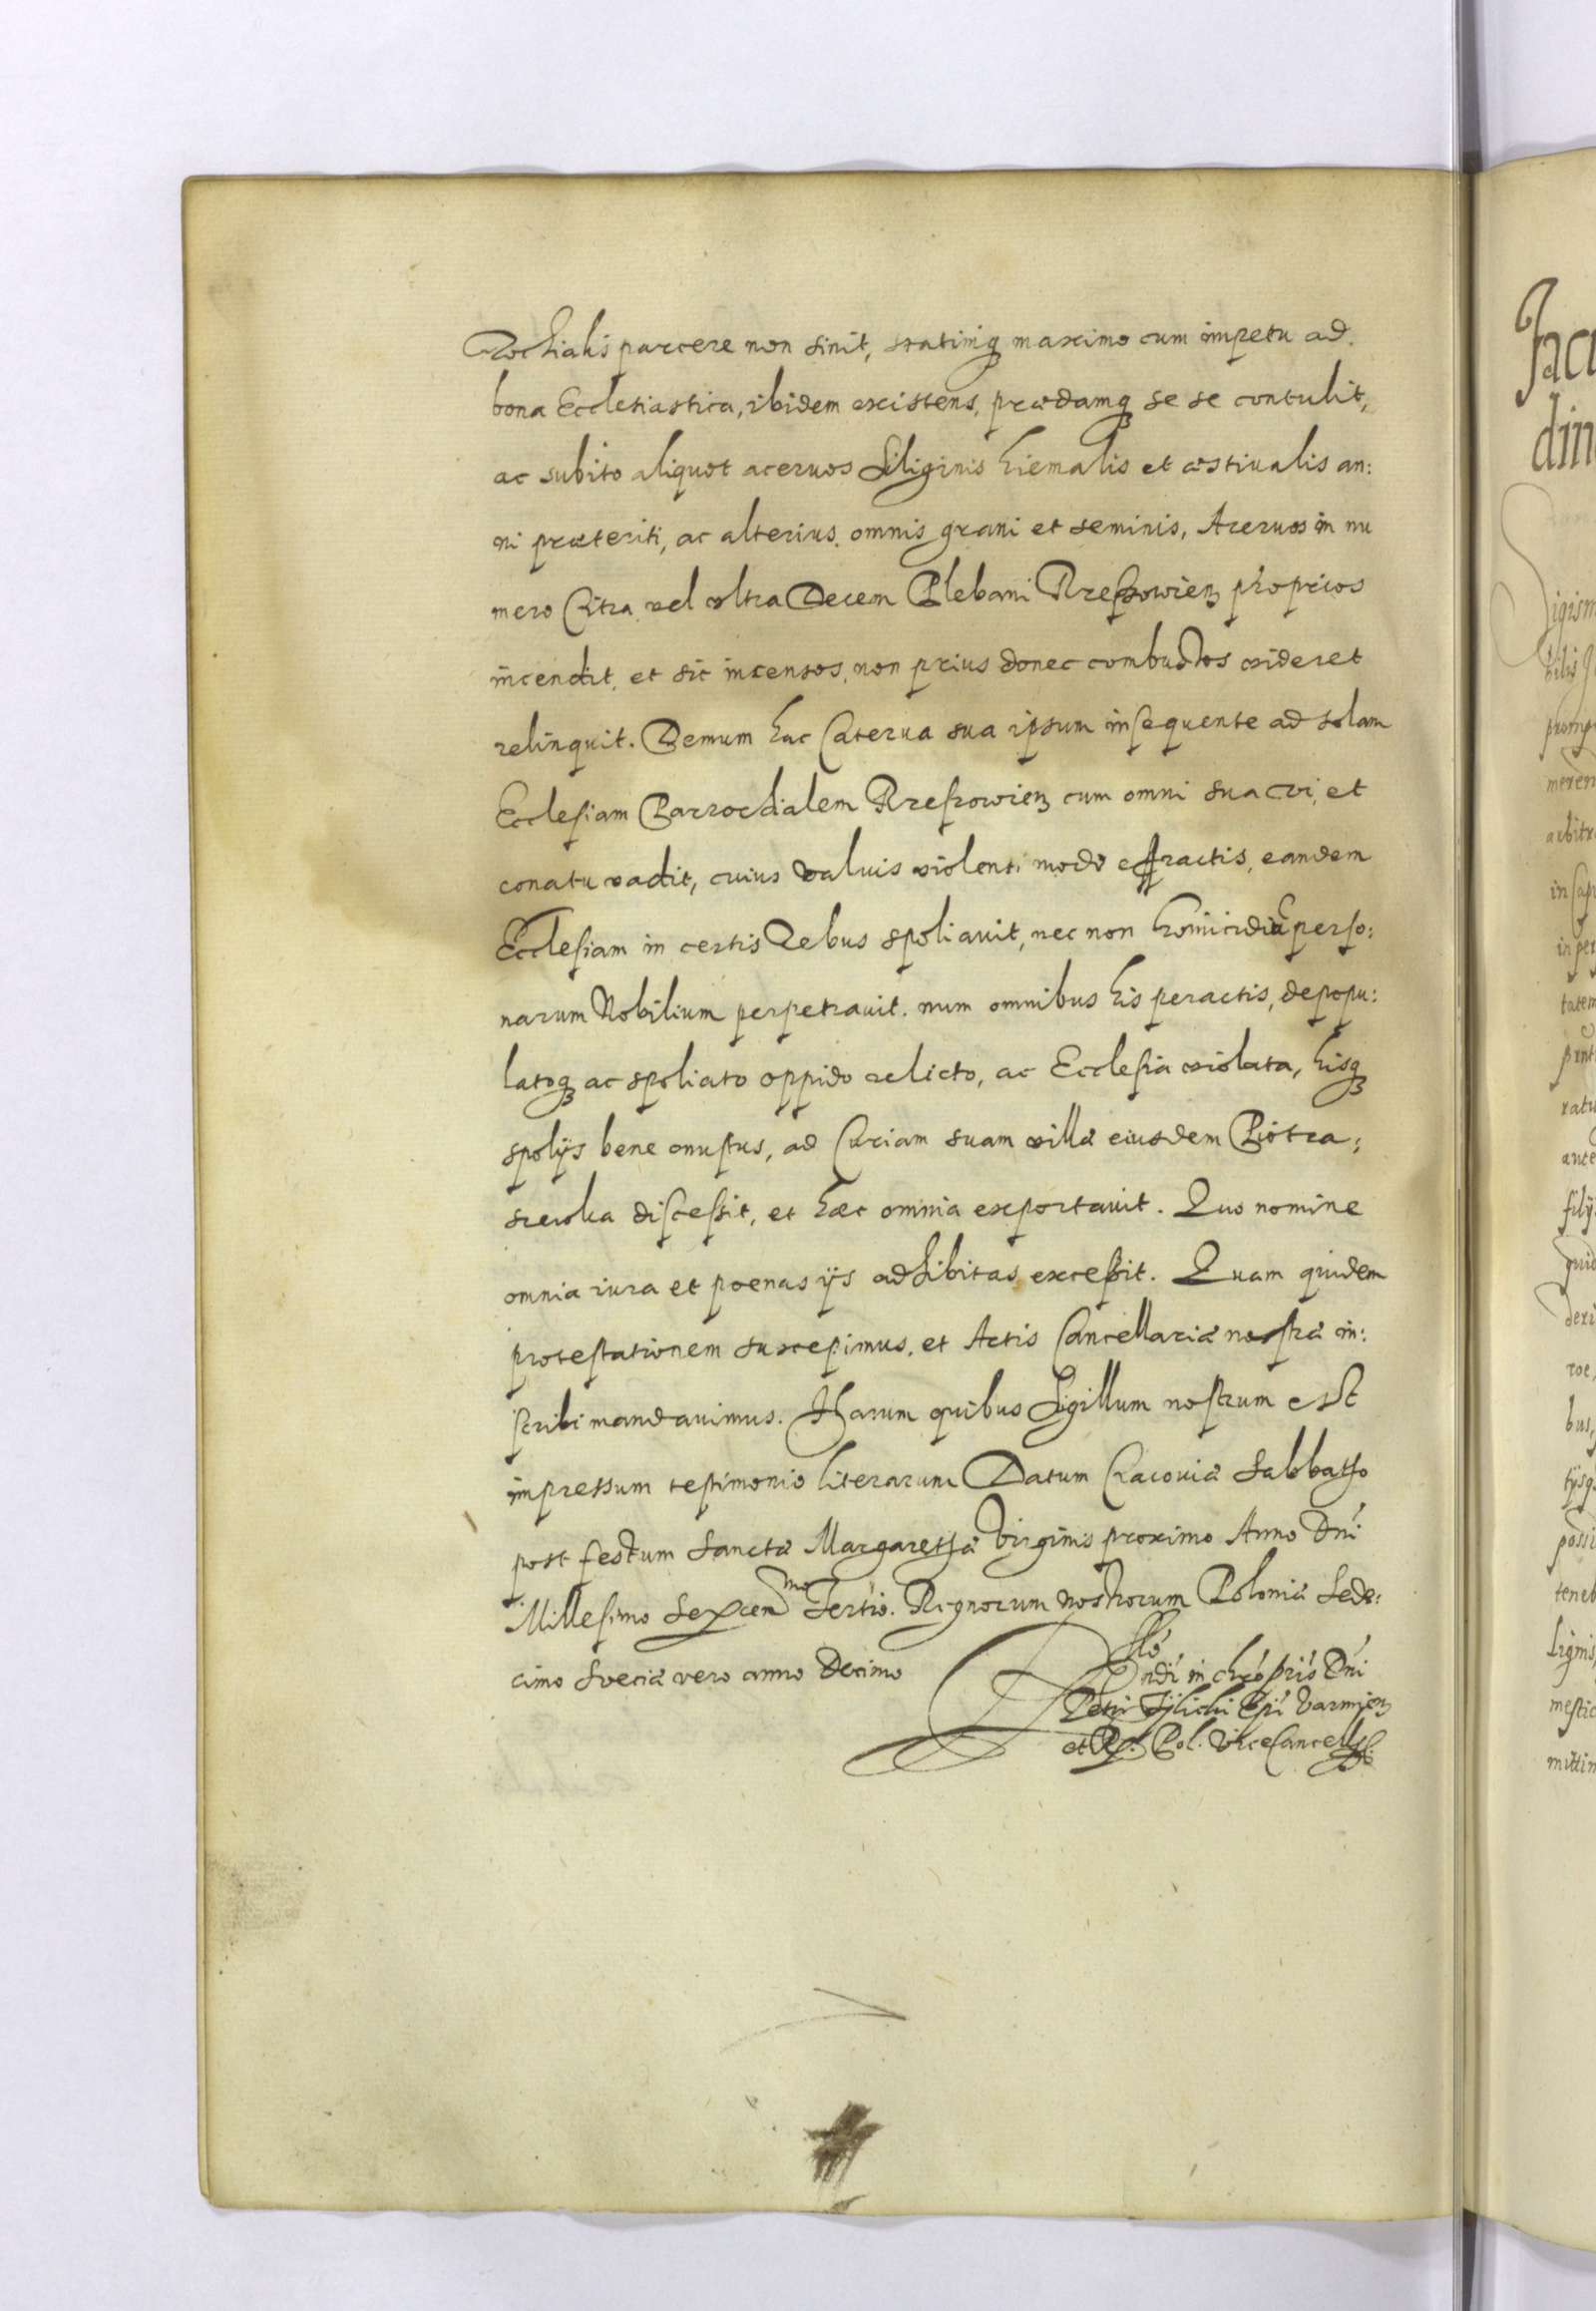 rochialis parcere non sinit, statimq; maximo cum impetu ad
bona Ecclesiastica, ibidem existens, prædamq; se se contulit,
ac subito aliquot aceruos Siliginis hiemalis et æstiualis an:
ni præteriti, ac alterius omnis grani et seminis, Aceruos in nu
mero Citra vel vltra Decem Plebani Rzeszowien proprios
incendit, et sic incensos, non prius donec combustos videret
relinquit. Demum hac Caterua sua ipsum insequente ad solam
Ecclesiam Parrochialem Rzeszowien cum omni sua vi, et
conatu vadit, cuius valuis violenti modo effractis, eandem
Ecclesiam in certis Rebus spoliauit, nec non homicidiū perso:
narum Nobilium perpetrauit. num omnibus his peractis, depopu:
latoq; ac spoliato oppido relicto, ac Ecclesia violata, hisq;
spolijs bene onustus, ad Curiam suam villæ eiusdem Piotra:
szewka discessit, et hæc omnia exportauit. Quo nomine
omnia iura et poenas ijs adhibitas excessit. Quam quidem
protestationem suscepimus, et Actis Cancellariæ nostræ in:
scribi mandauimus. Harum quibus Sigillum nostrum est
impressum testimonio literarum Datum Cracouiæ Sabbatho
post festum Sanctæ Margarethæ Virginis proximo Anno Dni
Millesimo Sexcenmo Tertio. Regnorum nostrorum Poloniæ Sede:
cimo Sveciæ vero anno Decimo
Rndi in chro pris Dni
Petri Tÿlicki Epi Varmien
et R. Pol. ViceCancell